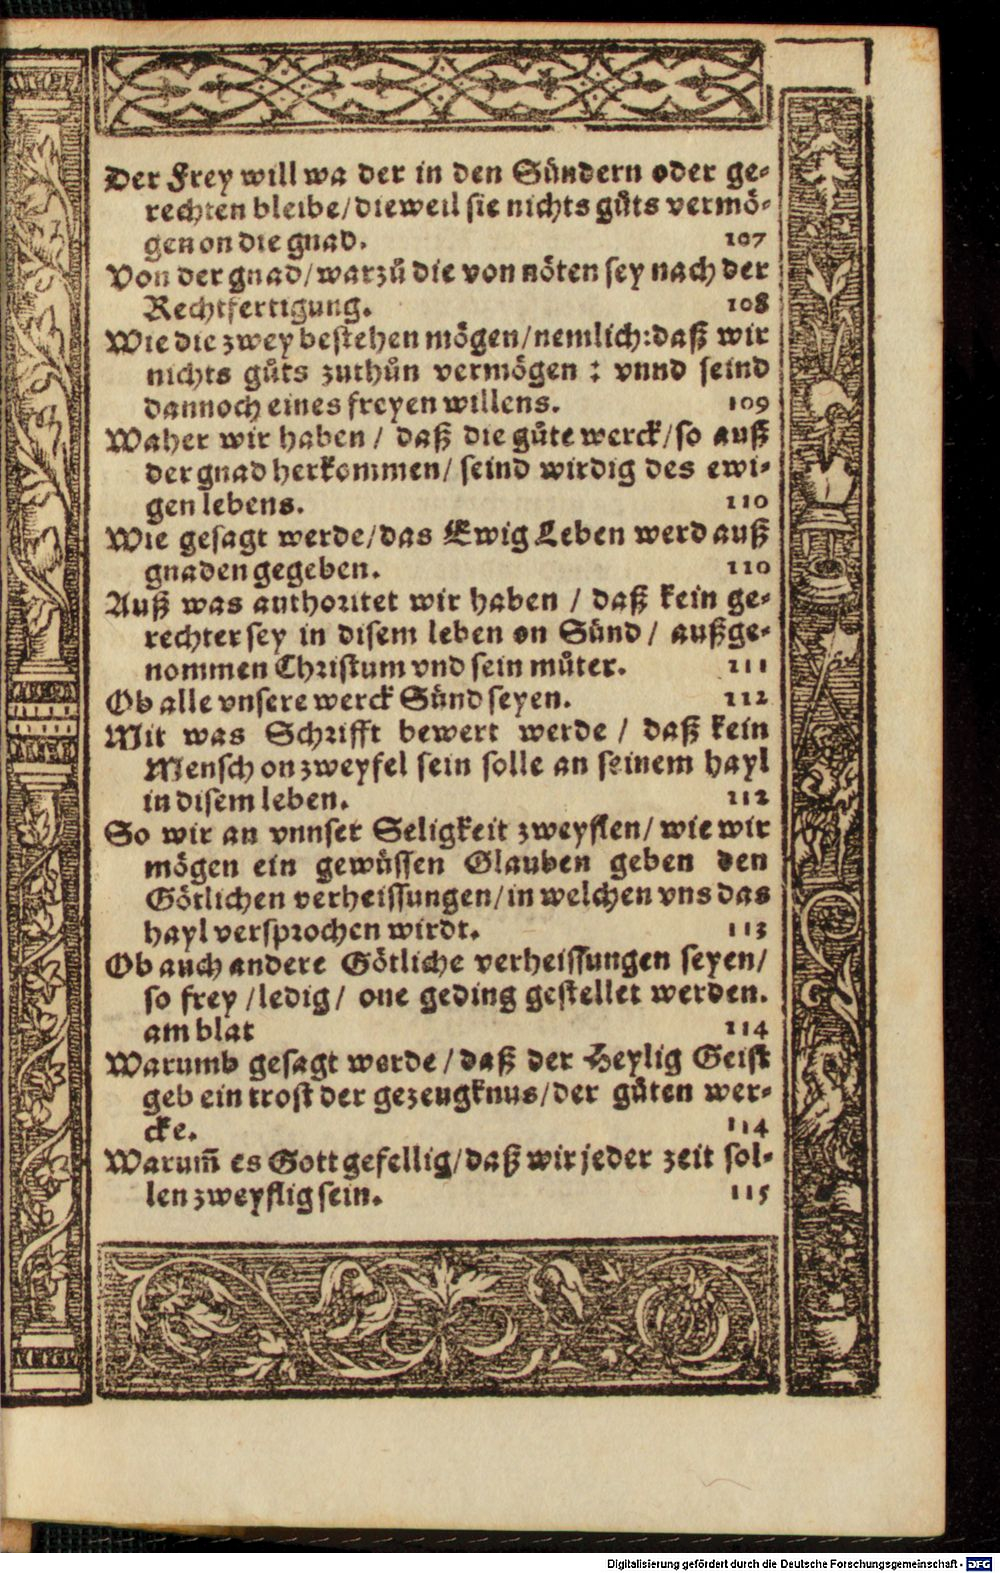 Der Frey will wa der in den Sündern oder ge⸗
rechten bleibe/dieweil sie nichts gůts vermö⸗
gen on die gnad. 107
Von der gnad/warzů die von nöten sey nach der
Rechtfertigung. 108
Wie die zwey bestehen mögen/nemlich:daß wir
nichts gůts zuthůn vermögen : vnnd seind
dannoch eines freyen willens. 109
Waher wir haben / daß die gůte werck/so auß
der gnad herkommen/ seind wirdig des ewi⸗
gen lebens. 110
Wie gesagt werde/das Ewig Leben werd auß
gnaden gegeben. 110
Auß was authoritet wir haben / daß kein ge⸗
rechter sey in disem leben on Sünd / außge⸗
nommen Christum vnd sein můter. 111
Ob alle vnsere werck Sünd seyen. 112
Mit was Schrifft bewert werde / daß kein
Mensch on zweyfel sein solle an seinem hayl
in disem leben. 112
So wir an vnnser Seligkeit zweyflen/ wie wir
mögen ein gewüssen Glauben geben den
Götlichen verheissungen/in welchen vns das
hayl versprochen wirdt. 113
Ob auch andere Götliche verheissungen seyen/
so frey /ledig/ one geding gestellet werden.
am blat 114
Warumb gesagt werde/daß der Heylig Geist
geb ein trost der gezeugknus/der gůten wer⸗
cke. 114
Warum̄ es Gott gefellig/daß wir jeder zeit sol⸗
len zweyflig sein. 115
Digitalisierung gefördert durch die Deutsche Forschungsgemeinschaft - DFG